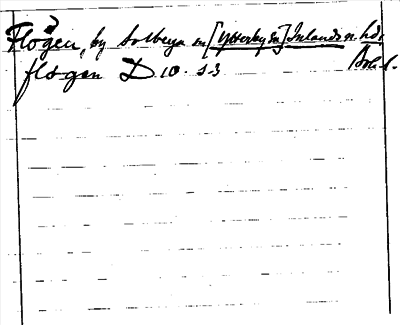 Flögen, by Solberga sn [Ytterby sn] Inlands n. hd.
Boh. l.
flogan D 10. 53